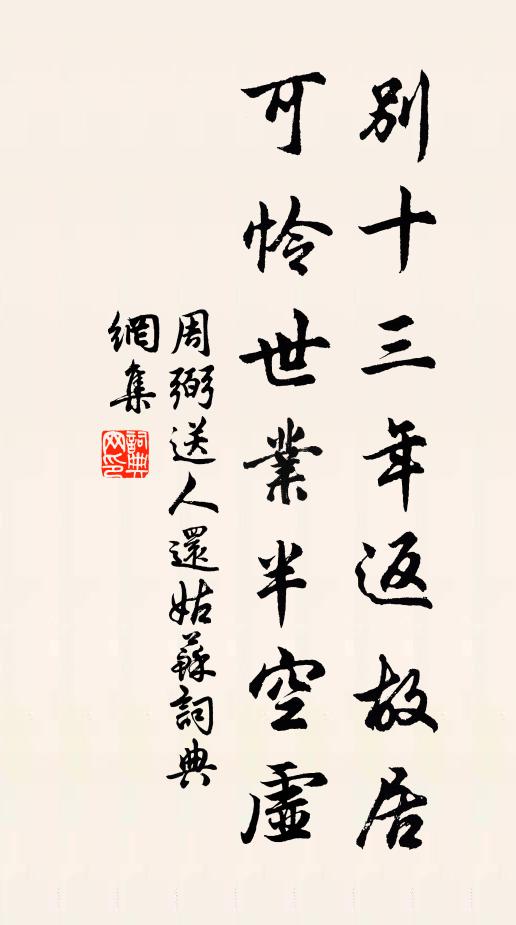 別十三年返故居
可怜世業半空虛
周弼送人還姑蘇詞典
網集
詞典網印